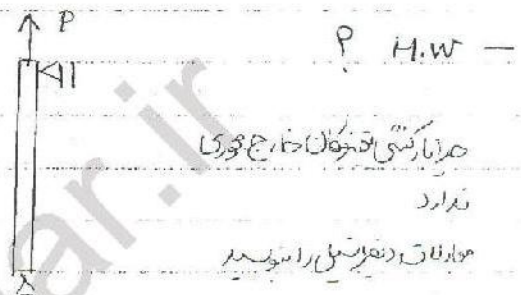 P
؟ H.W –
چرا بار کششی تغییر مکان خارج محوری
ندارد
معادلات دیفرانسیل را بنویسید
ar.ir